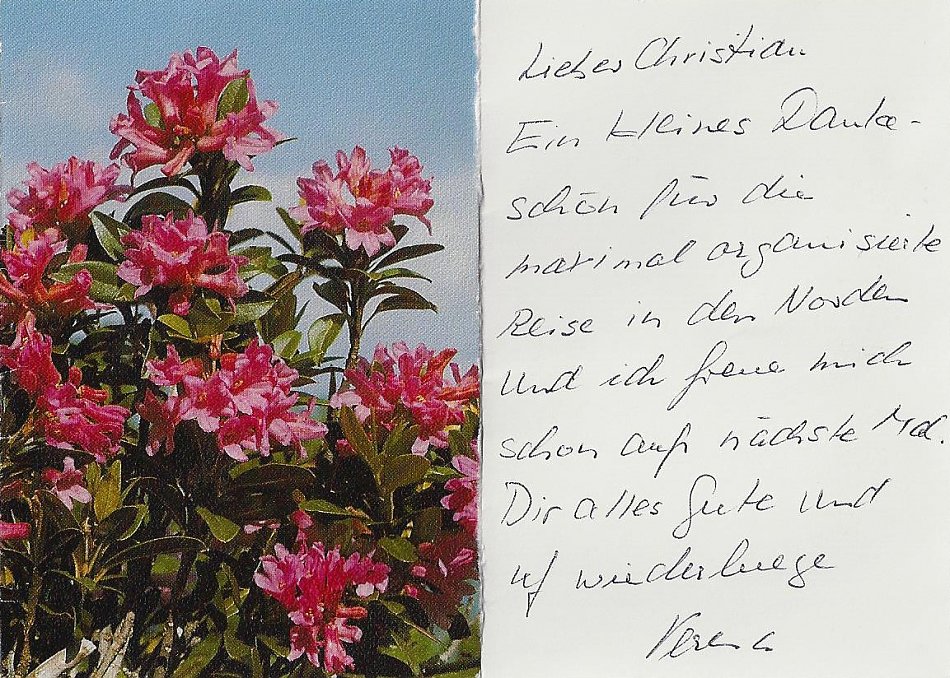 Lieber Christian
Ein kleines Danke-
schön für die
maximal organisierte
Reise in den Norden
und ich freue mich
schon aufs nächste Mal.
Dir alles Gute und
uf wiederluege
Verena